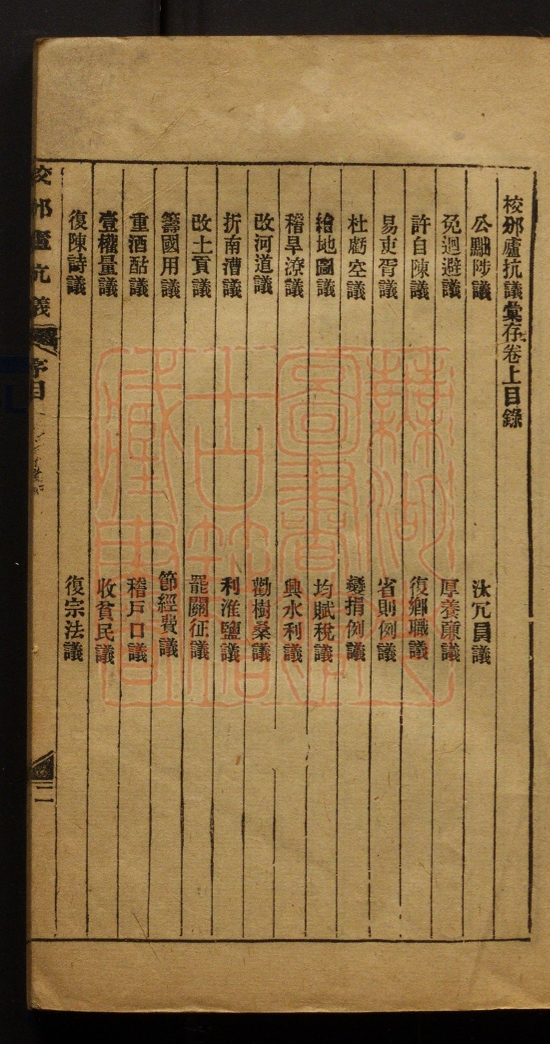 校邠廬抗議彙存卷上目錄
公黜陟議　汰冗員議
免迴避議　厚養廉議
許自陳議　復鄉職議
易吏胥議　省則例議
杜虧空議　變捐例議
繪地圖議　均賦稅議
稽旱潦議　興水利議
改河道議　勸樹桑議
折南漕議　利淮鹽議
改土貢議　罷關征議
籌國用議　節經費議
重酒酤議　稽戶口議
壹權量議　收貧民議
復陳詩議　復宗法議
校邠廬抗議　序目　二